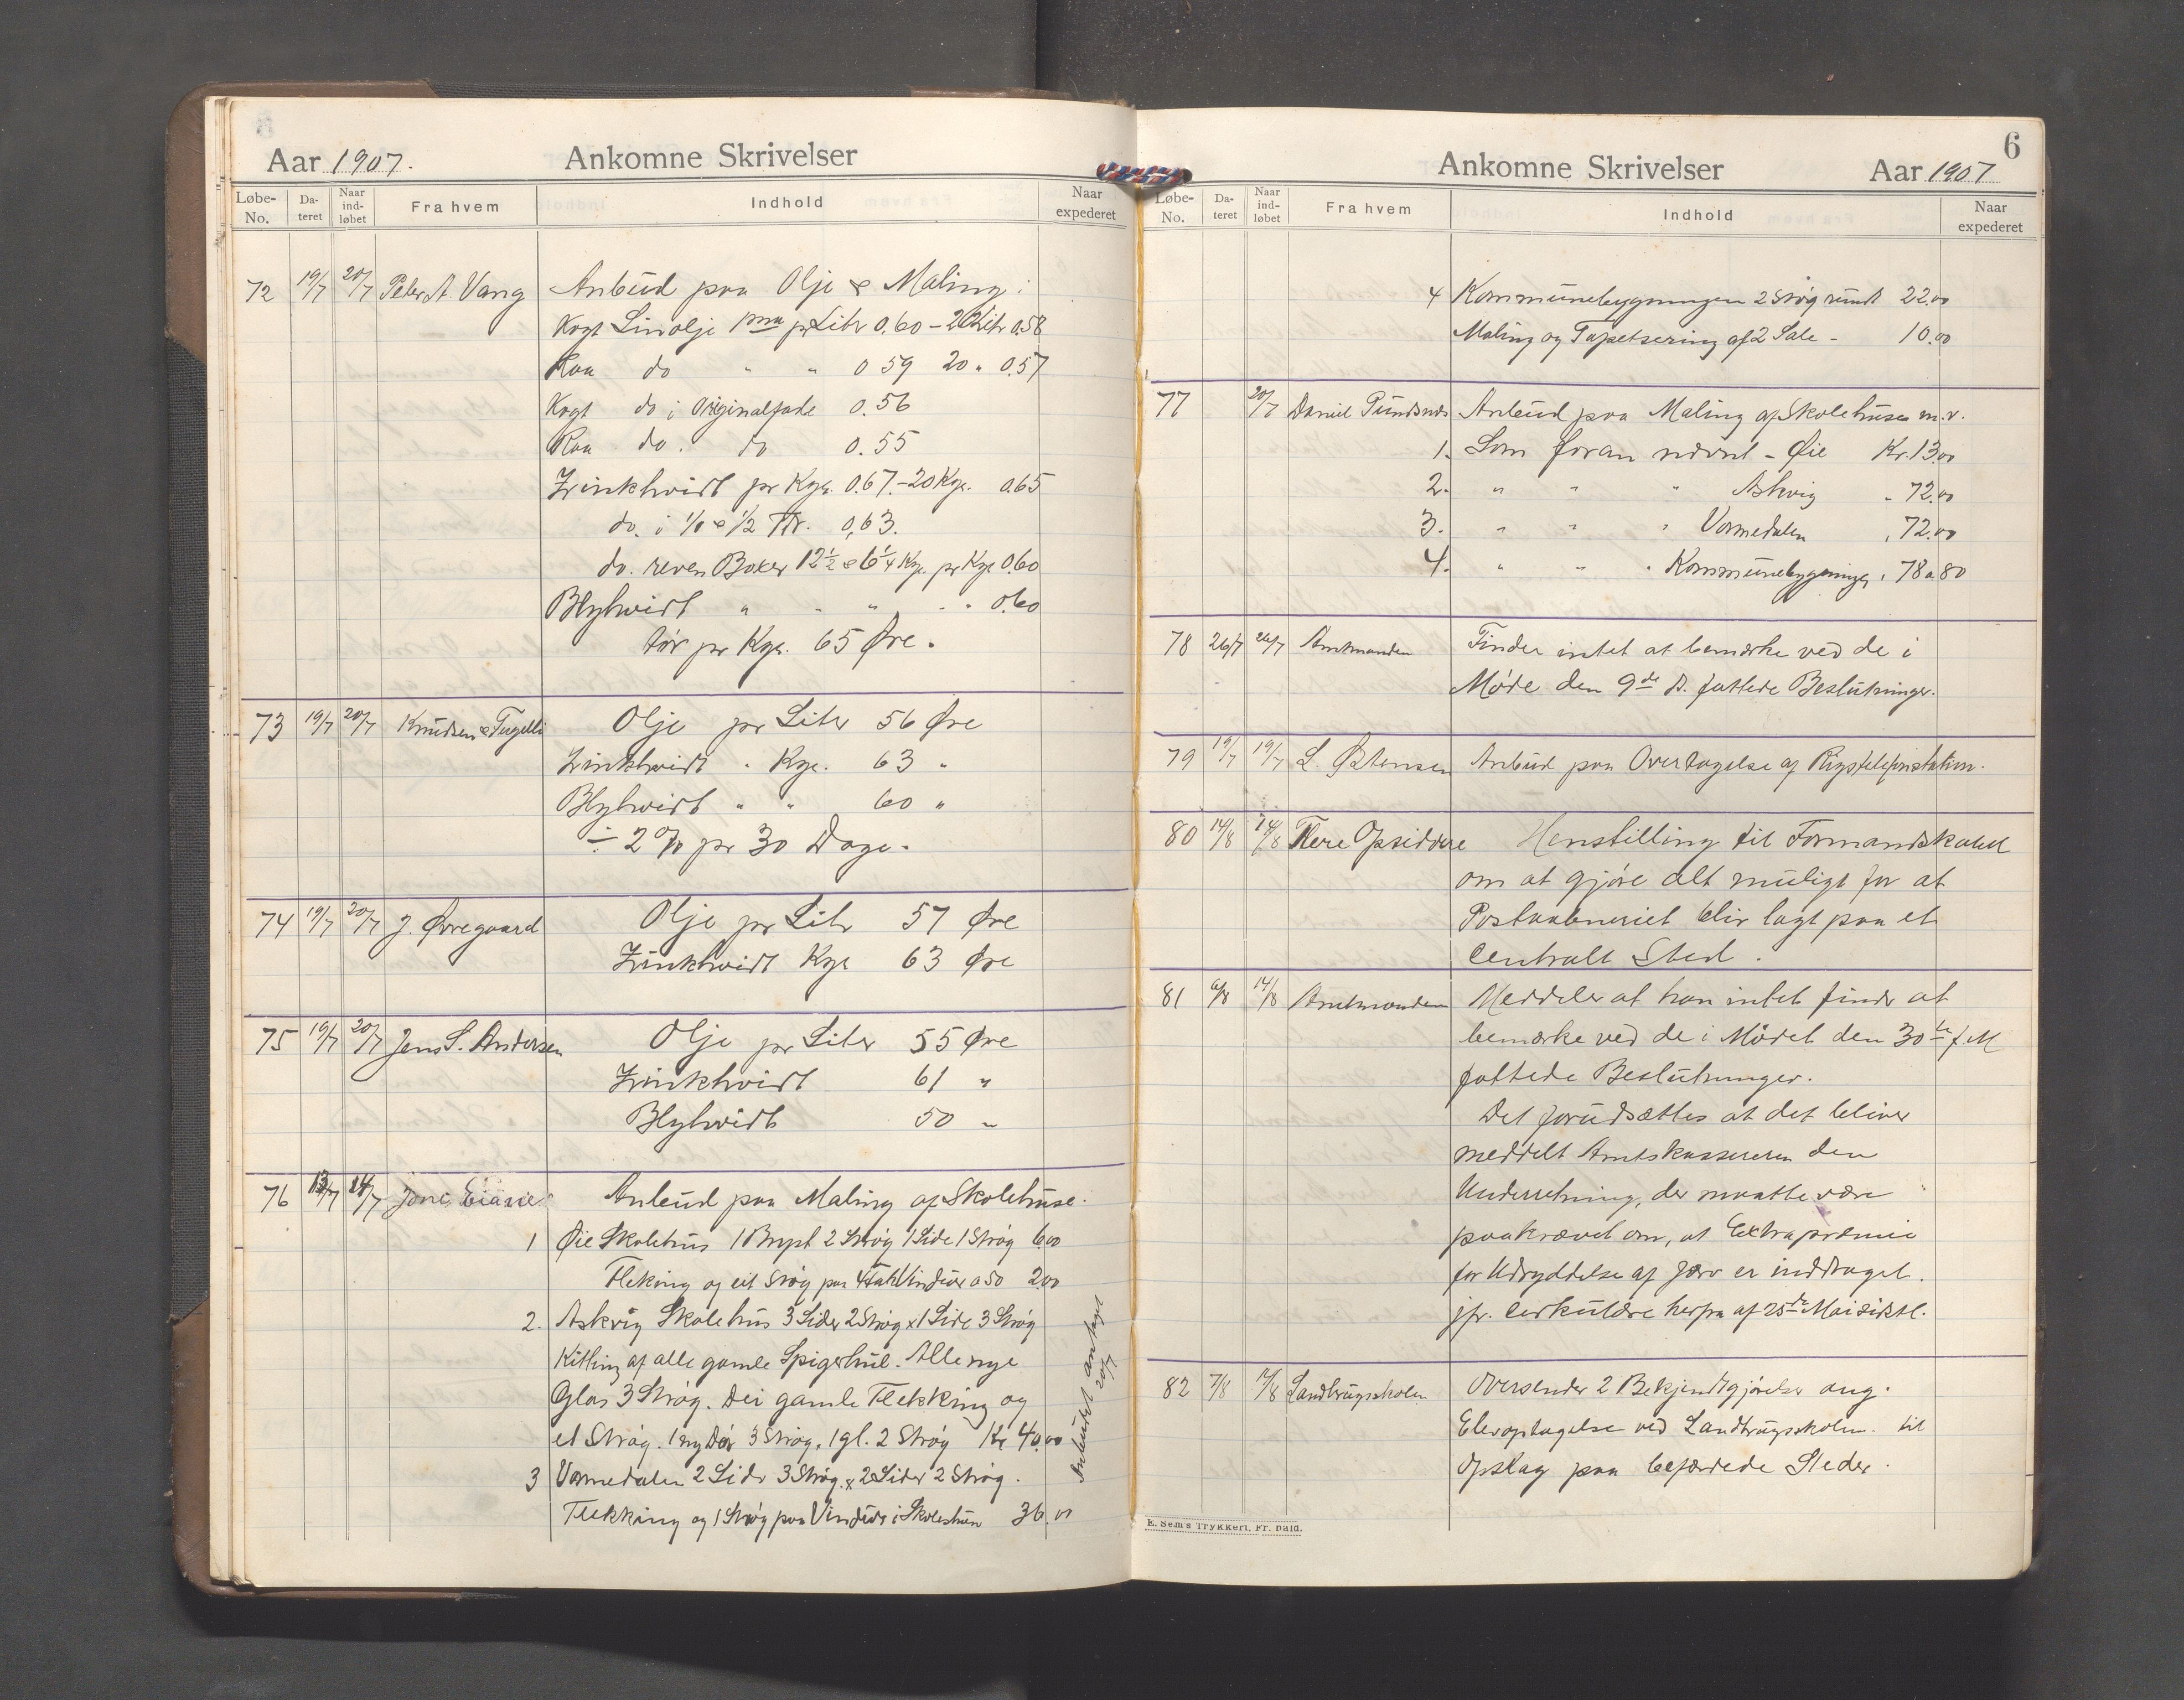 Aar 1907. Ankomne Skrivelser
Løbe-No. Da-teret Naar ind-løbet Fra hvem Indhold Naar expederet
72 19/7 20/7 Peter A Vang Anbud paa Olje & Maling:
Kogt Linolje 1ma pr Litr 0.60 – 20 Litr 0.58
Raa do " " 0 59 20 " 0.57
Kogt do i Originalfade 0.56
Raa do. do 0.55
Zinkhvidt pr Kge. 0.67.–20 Kge. 0.65
do. i 1/1 & 1/2 Ttr. 0,63.
do. reven Boxer 12 1/2 & 6 1/4 Kg. pr Kge 0.60
Blyhvidt " " " " " 0.60
tør pr Kge. 65 Øre.
73 19/7 20/7 Knudsen & Olje pr Liter 56 Øre
Zinkhvidt " Kge. 63 "
Blyhvidt " " 60 "
÷ 2 % pr 30 Dage.
74 19/7 20/7 J. Øvregaard Olje pr Litr 57 Øre
Zinkhvidt Kge 63 Øre
75 19/7 20/7 Jens S. Andersen Olje pr Liter 55 Øre
Zinkhvidt 61 "
Blyhvidt 50 "
76 13/7 14/7 Jone Eiane Anbud paa Maling af Skolehuse.
1 Øie Skolehus 1 2 Strøg 1 Side 1 Strøg 6.00
Flekking og eit Strøg paa 4 Vinduer a 50 2.00
2. Askvig Skolehus 3 Sider 2 Strøg x 1 Side 3 Strøg
Kitting af alle gamle Spigerhul. Alle nye
Glas 3 Strøg. Dei gamle Flekking og
et Strøg. 1 ny Dør 3 Strøg. 1 gl. 2 Strøg Kr 40.00
3 Vormedalen 2 Sider 3 Strøg. x 2 Sider 2 Strøg.
Flekking og 1 Strøg paa Vinduer i Skolestuen 36.00
Anbudet antaget
20/7
6
Ankomne Skrivelser Aar 1907
Løbe-No. Da-teret Naar ind-løbet Fra hvem Indhold Naar expederet
4 Kommunebygningen 2 Strøg rundt 22.00
Maling og Tapetsering af 2 Sale - 10.00
77 20/7 Daniel Anbud paa Maling af Skolehuse m.v.
1. Som foran nævnt - Øie Kr. 13.00
2. " " " Askvig " 72.00
3. " " " Vormedalen " 72.00
4. " " " Kommunebygningen " 78 a 80
78 26/7 26/7 Amtmanden Finder intet at bemærke ved de i
Møde den 9de ds. fattede Beslutninger.
79 19/7 19/7 L. Østensen Anbud paa Overtagelse af Rigstelefonstation.
80 14/8 14/8 Flere Opsiddere Henstilling til Formandskabet
om at gjøre alt muligt for at
Postaabneriet blir lagt paa et
centralt Sted.
81 6/8 14/8 Amtmanden Meddeler at han intet finder at
bemærke ved de i Mødet den 30te f. M
fattede Beslutninger.
Det forudsættes at det bliver
meddelt Amtskassereren den
Underretning, der maatte være
paakrævet om, at Extrapræmie
for Udryddelse af Jærv er inddraget.
jfr. Cirkulære herfra af 25de Mai sidstl.
82 7/8 14/8 Landbrugsskolen Oversender 2 Bekjendtgjørelser ang.
Elevoptagelse ved Landbrugsskolen til
Opslag paa befærdede Steder.
E. Sem's Trykkeri, Fr. hald.